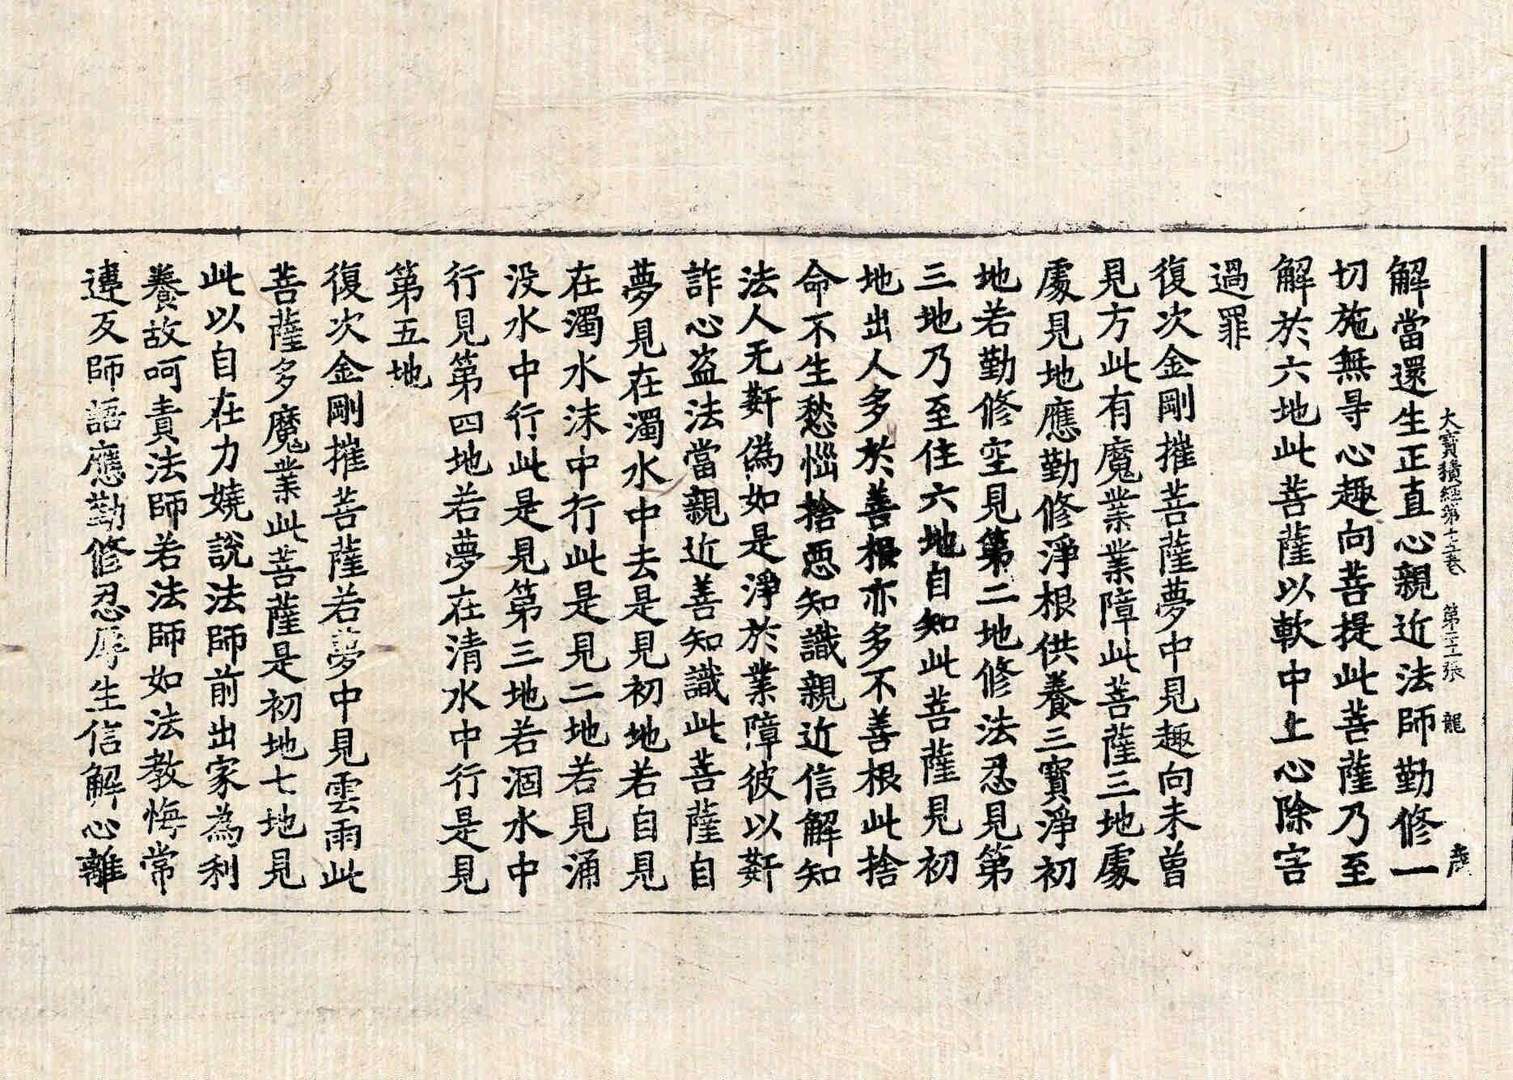 大寶積經第十五卷 第二十二張 龍
解當還生正直心親近法師勤修一
切施無㝵心趣向菩提此菩薩乃至
解於六地此菩薩以軟中上心除害
過罪
復次金剛摧菩薩夢中見趣向未曾
見方此有魔業業障此菩薩三地處
處見地應勤修淨根供養三寶淨初
地若勤修空見第二地修法忍見第
三地乃至住六地自知此菩薩見初
地出人多於善根亦多不善根此捨
命不生愁惱捨惡知識親近信解知
法人无姧偽如是淨於業障彼以姧
詐心盗法當親近善知識此菩薩自
夢見在濁水中去是見初地若自見
在濁水沫中行此是見二地若見涌
没水中行此是見第三地若涸水中
行見第四地若夢在清水中行是見
第五地
復次金剛摧菩薩若夢中見雲雨此
菩薩多魔業此菩薩是初地七地見
此以自在力嬈說法師前出家為利
養故呵責法師若法師如法教悔常
違反師語應勤修忍辱生信解心離